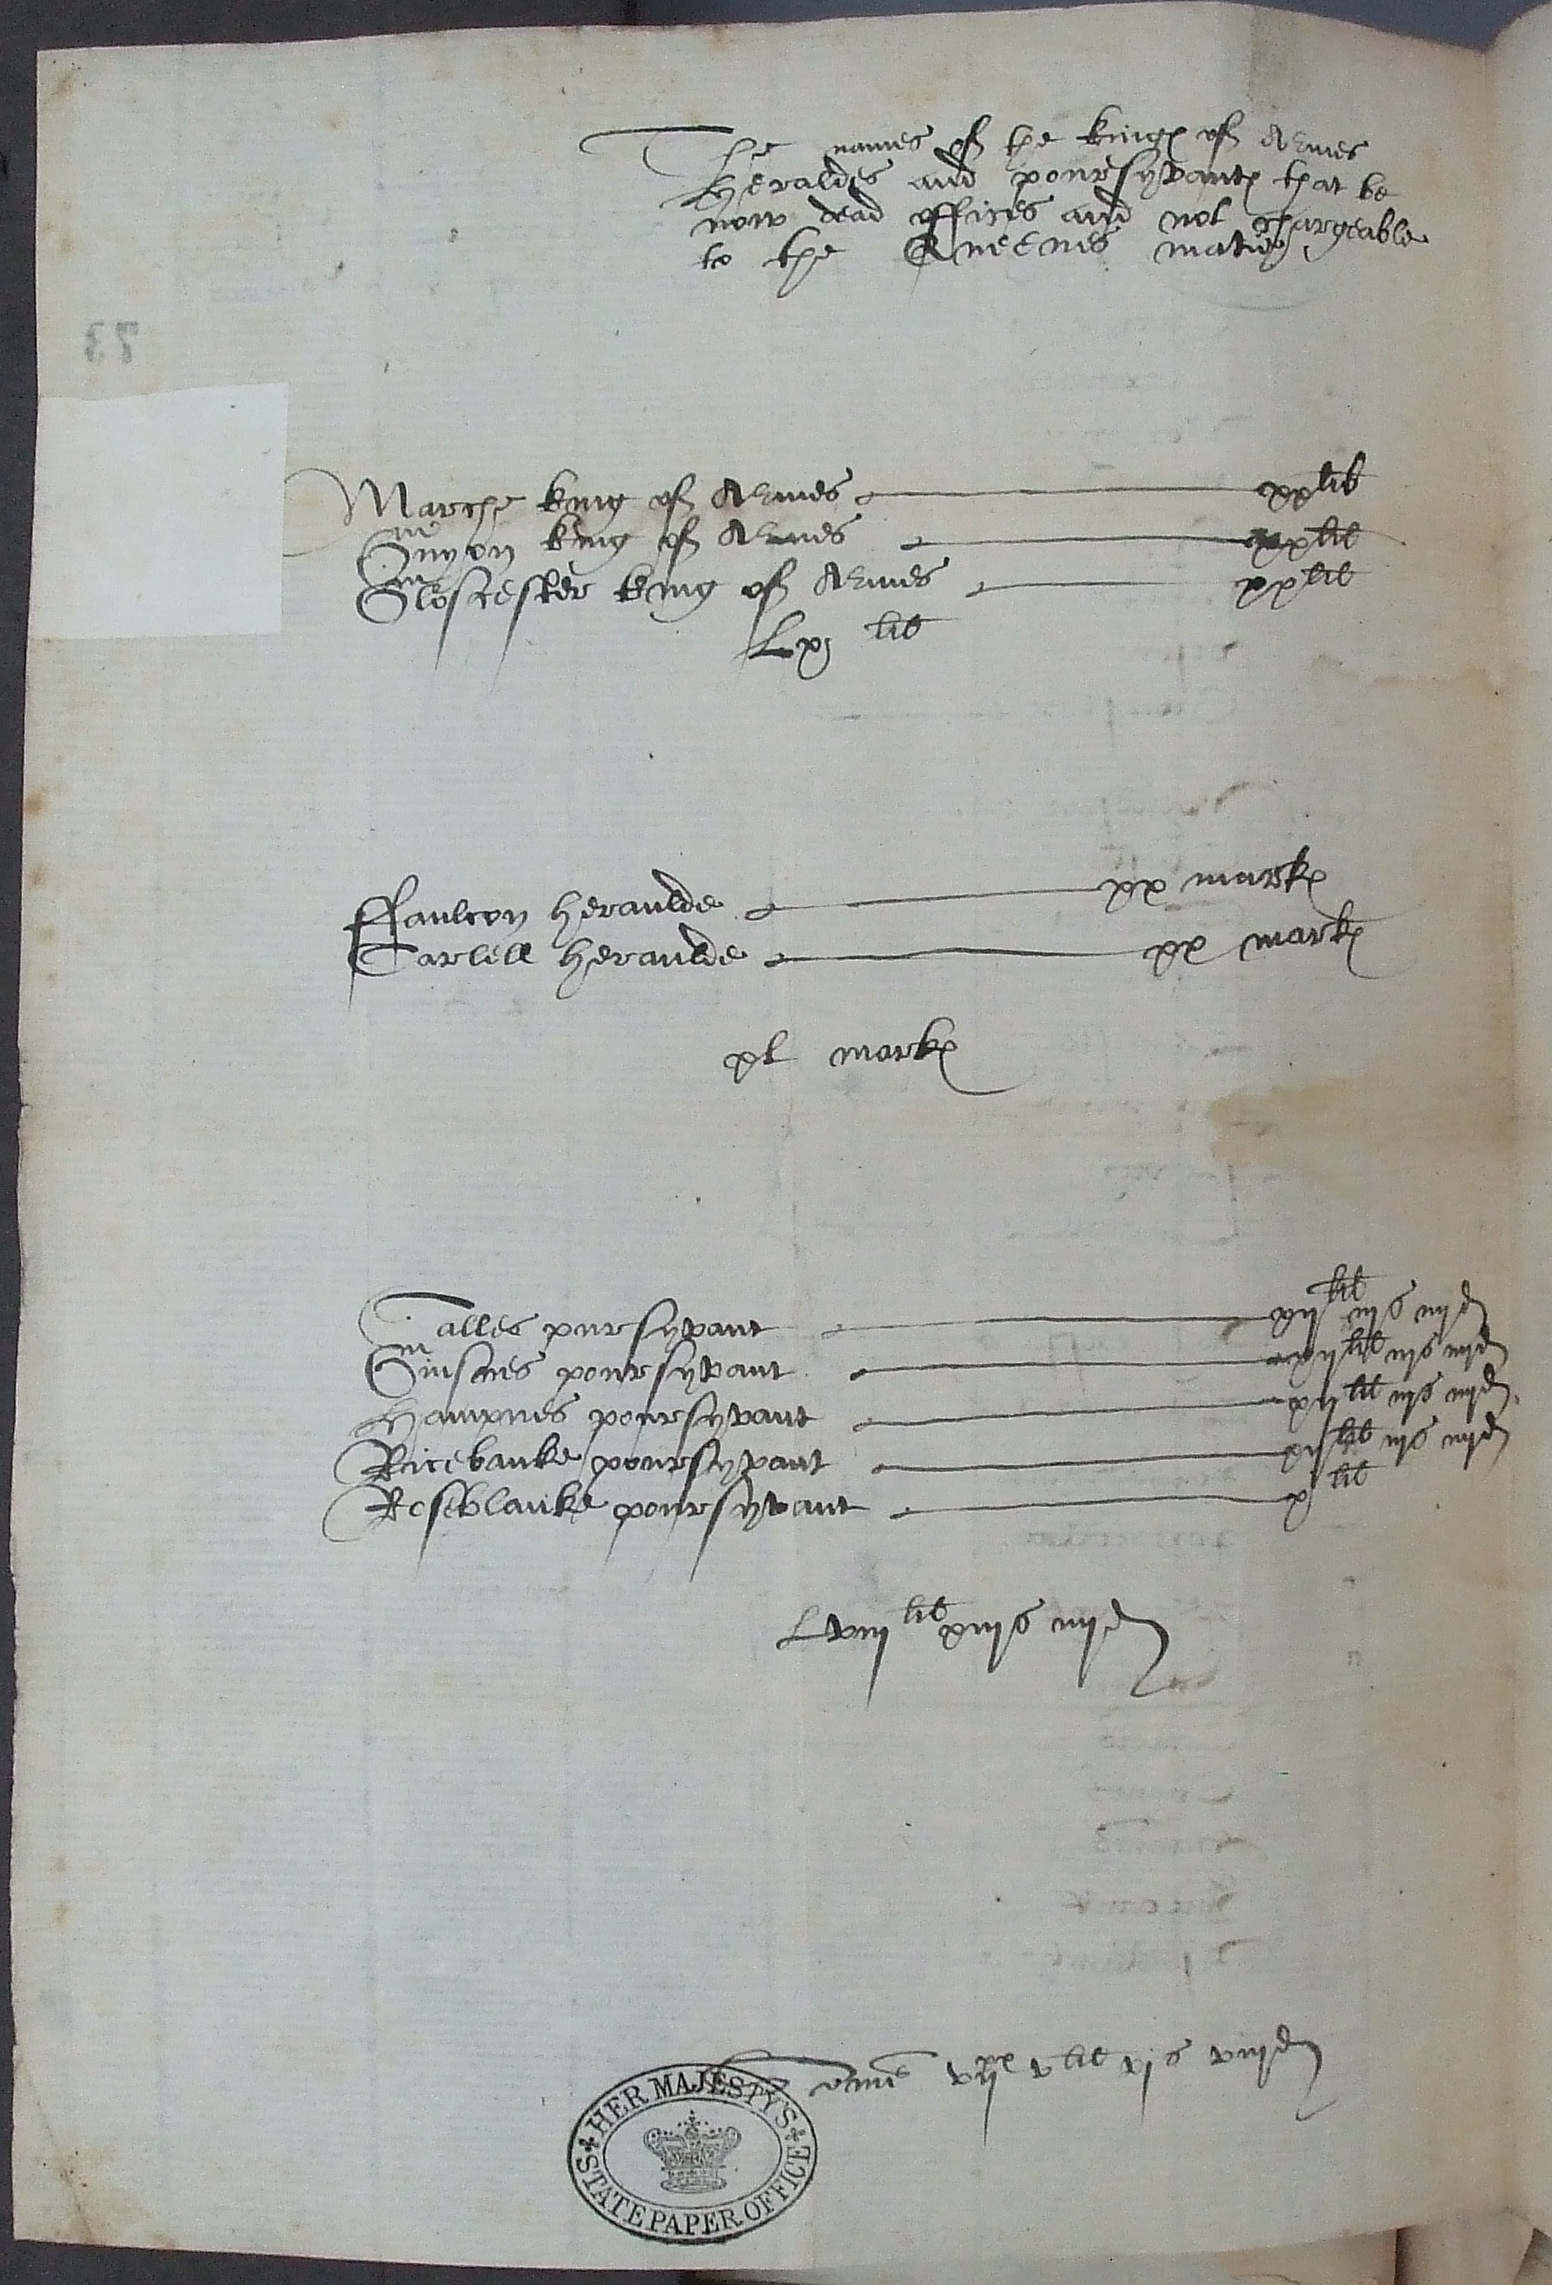 The names of the kinges of Armes
Heraldes and poursyvantes that be
now dead offices and not chargeable
to the Queenes matie
73
Marche king of Armes xx lib
Guyon king of Armes xx lib
Glocester king of Armes xx lib
Lx lib
ffaulcon heraulde xx markes
Carlell heraulde xx markes
xl markes
Calles pursyvant xij lib iij s iiij d
Guisnes poursyvant xij lib iij s iiij d
Hampnes poursyvant xij lib iij s iiij d
Ricebanke poursyvant xij lib iij s iiij d
Roseblanke poursyvant x lib
Lviij lib xiij s iiij d
v lib vj s viij d
HER MAJESTY'S
STATE PAPER OFFICE